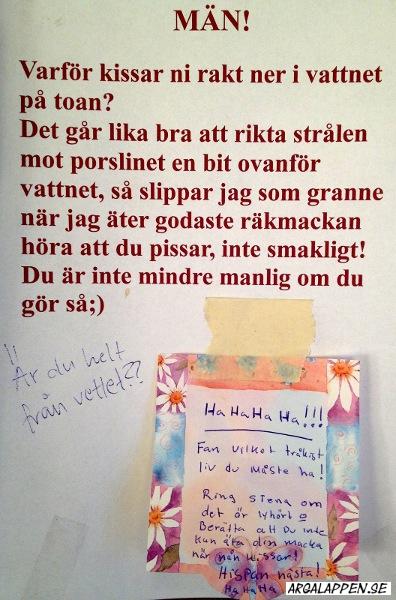 MÄN!
Varför kissar ni rakt ner i vattnet
på toan?
Det går lika bra att rikta strålen
mot porslinet en bit ovanför
vattnet, så slippar jag som granne
när jag äter godaste räkmackan
höra att du pissar, inte smakligt!
Du är inte mindre manlig om du
gör så;)
!!
Är du helt
från vettet??
Ha Ha Ha Ha!!!
Fan vilket tråkigt
liv du måste ha!
Ring Stena om
det är lyhört
Berätta att Du inte
kan äta din macka
när nån kissar!
Hispan nästa!
Ha Ha Ha
ARGALAPPEN.SE